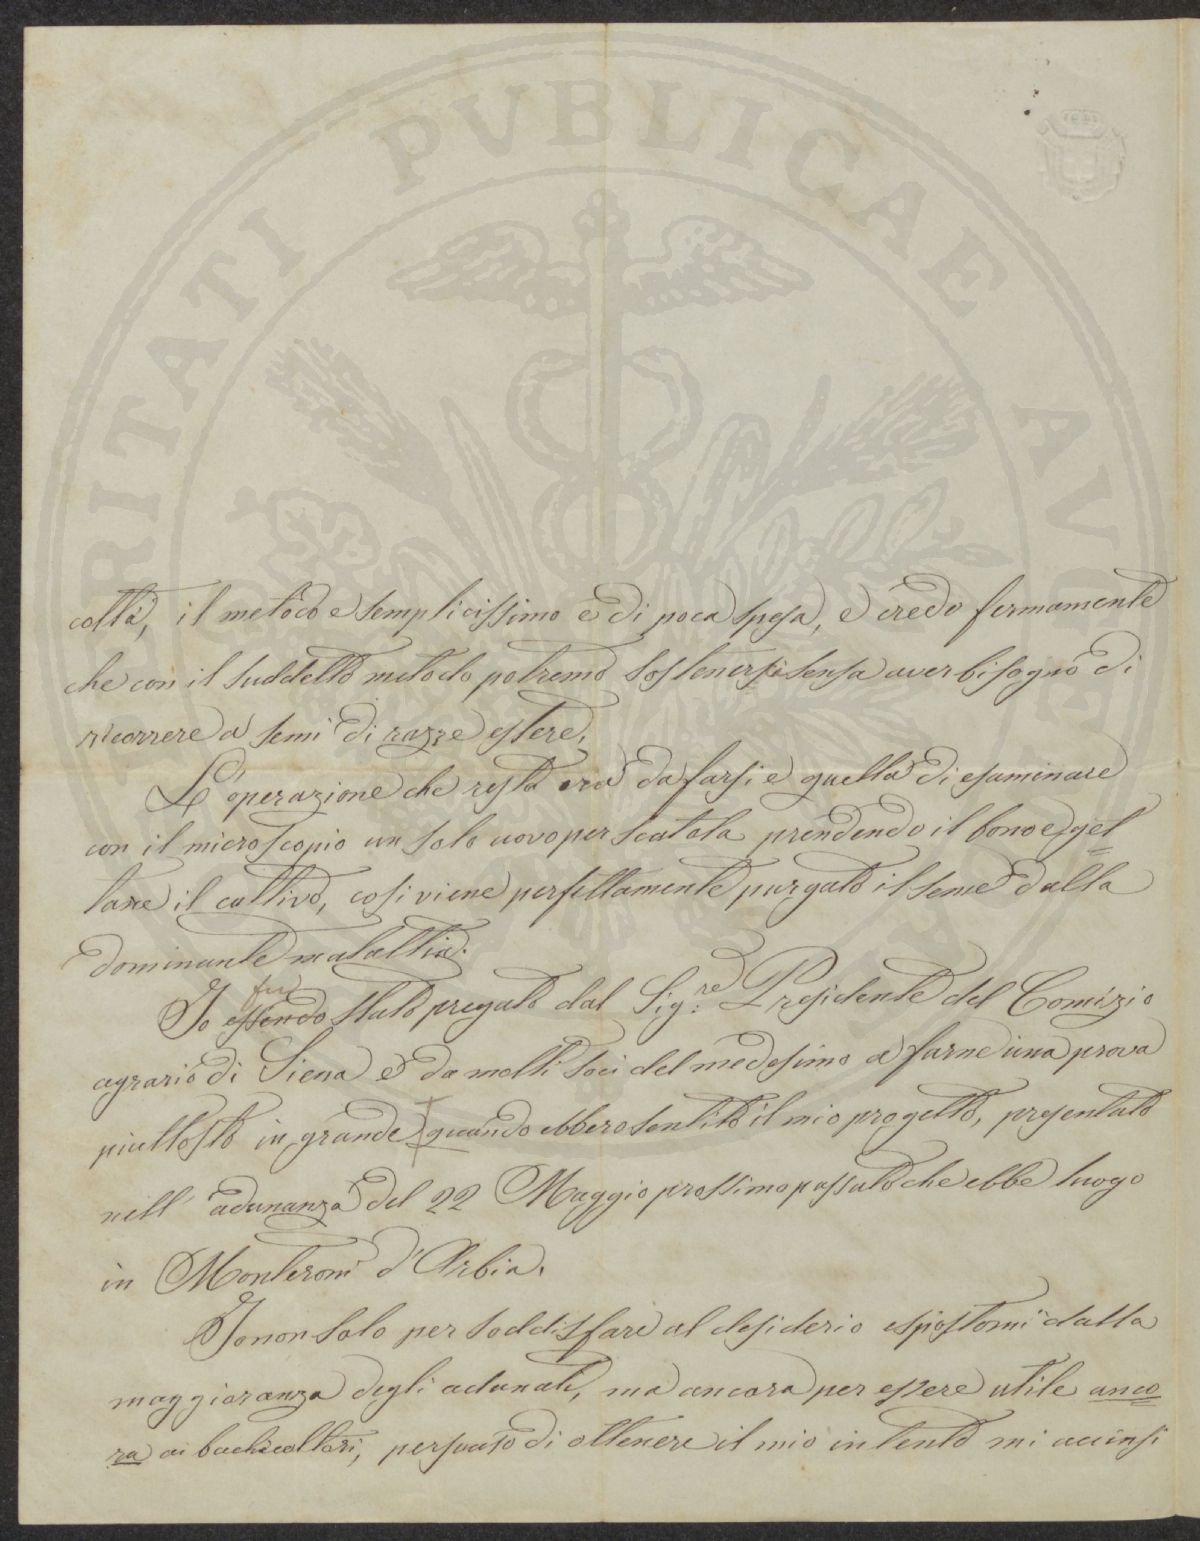 PROSPERITATI PVBLICAE AVGENDAE
coltà, il metodo e semplicissimo e di poca spesa, e credo fermamente
che con il suddetto metodo potremo sostenersi sensa aver bisogno di
ricorrere a semi di razze estere.
L'operazione che resta ora da farsi e quella di esaminare
con il microscopio un solo uovo per scatola prendendo il bono e get
tare il cattivo, cosi viene perfettamente purgato il seme dalla
dominante malattia.
fui
Io essendo stato pregato dal Sig:re Presidente del Comizio
agrario di Siena e da molti soci del medesimo a farne una prova
piuttosto in grande quando ebbero sentito il mio progetto, presentato
nell' adunanza del 22 Maggio prossimo passato che ebbe luogo
in Monteroni d'Arbia.
Io non solo per soddisfare al desiderio espostomi dalla
maggioranza degli adunati, ma ancora per essere utile anco
ra ai bachicoltori, persuaso di ottenere il mio intento mi accinsi